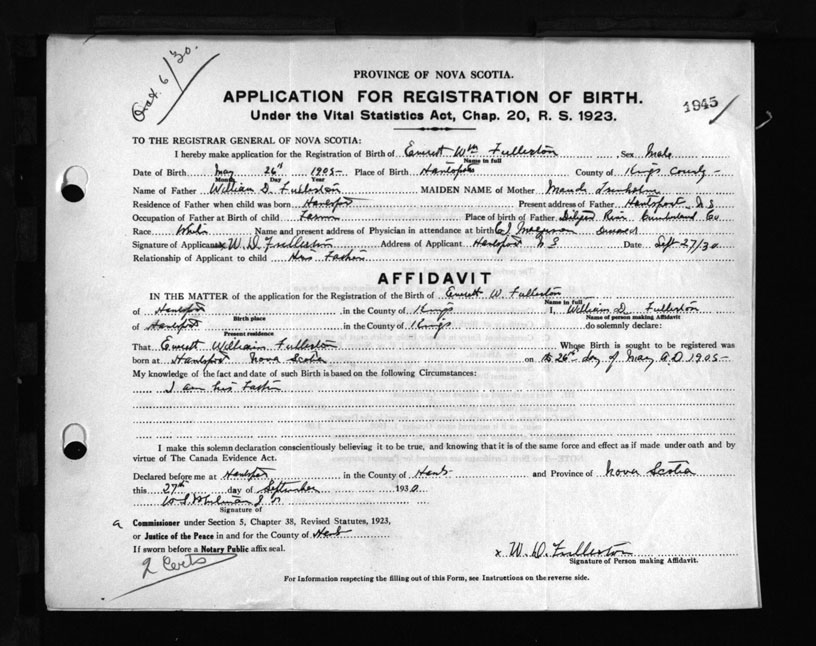 Oct. 6/30.
1945
PROVINCE OF NOVA SCOTIA.
APPLICATION FOR REGISTRATION OF BIRTH.
Under the Vital Statistics Act, Chap. 20, R. S. 1923.
TO THE REGISTRAR GENERAL OF NOVA SCOTIA:
I hereby make application for the Registration of Birth of Everett Wm Fullerton Sex Male
Name in full
Date of Birth May 26th 1905 Place of Birth Hantsport County of Kings County
Month Day Year
Name of Father William D. Fullerton MAIDEN NAME of Mother Maude
Residence of Father when child was born Hantsport Present address of Father Hantsport N S
Occupation of Father at Birth of child Farmer Place of birth of Father Diligent River Cumberland Co
Race White Name and present address of Physician in attendance at birth deceased
Signature of Applicant x W. D. Fullerton Address of Applicant Hantsport N S Date Sept 27/30
Relationship of Applicant to child His Father
AFFIDAVIT
IN THE MATTER of the application for the Registration of the Birth of Everett W. Fullerton
Name in full
of Hantsport in the County of Kings I, William D. Fullerton
Birth place Name of person making Affidavit
of Hantsport in the County of Kings do solemnly declare:
Present residence
That Everett William Fullerton Whose Birth is sought to be registered was
born at Hantsport Nova Scotia on the 26th day of May A.D. 1905
My knowledge of the fact and date of such Birth is based on the following Circumstances:
I am his Father
I make this solemn declaration conscientiously believing it to be true, and knowing that it is of the same force and effect as if made under oath and by
virtue of The Canada Evidence Act.
Declared before me at Hantsport in the County of Hants and Province of Nova Scotia
this 27th day of September 1930
Signature of
a Commissioner under Section 5, Chapter 38, Revised Statutes, 1923,
or Justice of the Peace in and for the County of Hants
If sworn before a Notary Public affix seal.
x W. D. Fullerton
Signature of Person making Affidavit.
2 Certs
For Information respecting the filling out of this Form, see Instructions on the reverse side.